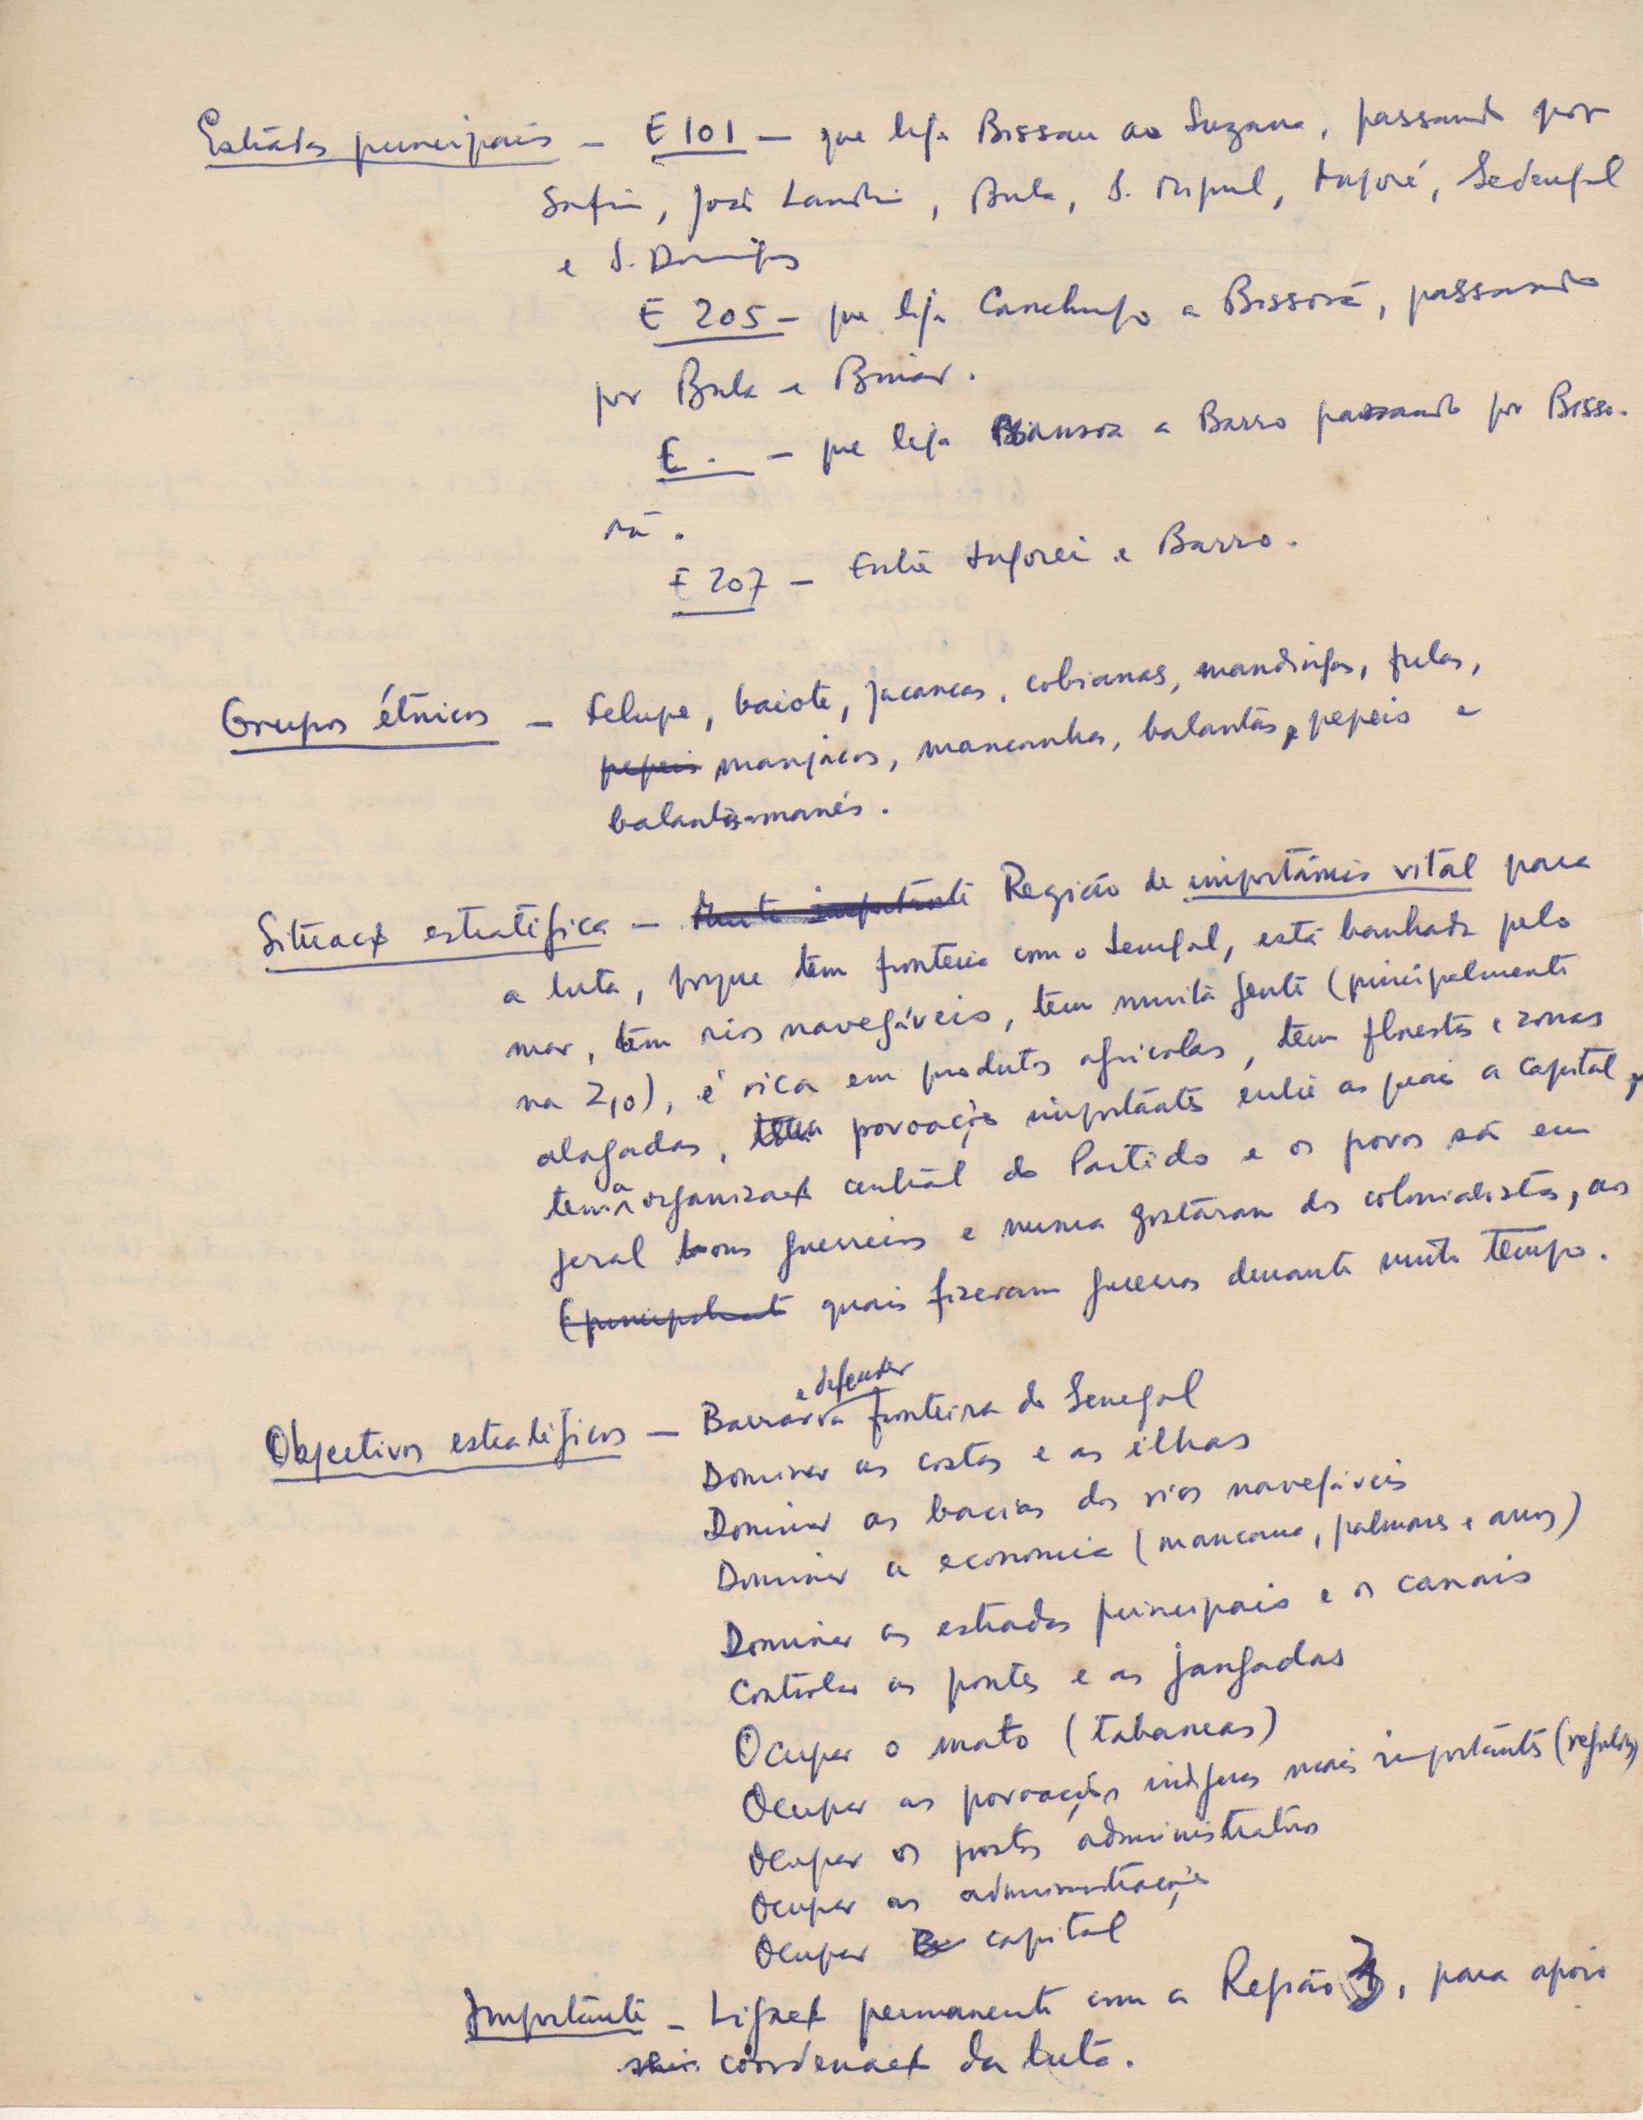 Estradas principais - E 101 - que liga Bissau ao Suzana, passando por
Safim, João Landim, Bula, S. Miguel, Ingoré, Sedengal
e S. Domingos
E 205 - que liga Canchungo a Bissorã, passando
por Bula e Binar.
E. - que liga Mansoa a Barro passando por Bisso-
rã.
E 207 - Entre Ingorei e Barro.
Grupos étnicos - Felupe, baiote, jacancas, cobianas, mandingas, fulas,
pepeis manjacos, mancanhas, balantas, pepeis e
balantas-manés.
Situação estratégica - Muito importante Região de importância vital para
a luta, porque tem fronteira com o Senegal, está banhada pelo
mar, tem rios navegáveis, tem muita gente (principalmente
na 2,0), é rica em produtos agricolas, tem florestas e zonas
alagadas, tem povoações importantes entre as quais a capital,
tem a organização central do Partido e os povos são em
geral bons guerreiros e nunca gostaram dos colonialistas, aos
(principalmente quais fizeram guerras durante muito tempo.
Objectivos estratégicos - Barrar e defender a fronteira do Senegal
Dominar as costas e as ilhas
Dominar as bacias dos rios navegáveis
Dominar a economia (mancarra, palmares e arroz)
Dominar as estradas principais e os canais
Controlar as pontes e as jangadas
Ocupar o mato (tabancas)
Ocupar as povoações indígenas mais importantes (regulos)
Ocupar os postos administrativos
Ocupar as administrações
Ocupar capital
Importante - Ligação permanente com a Região 3, para apoio
coordenação da luta.